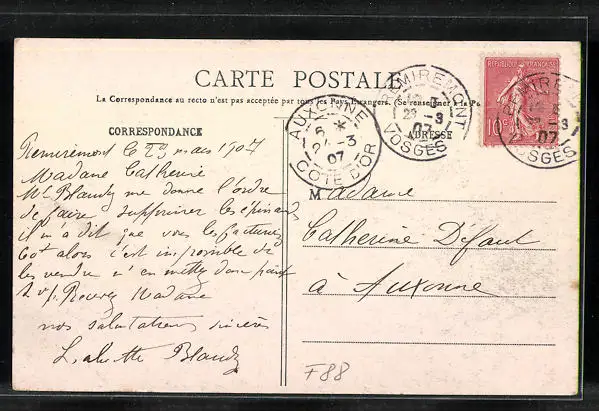 CARTE POSTALE
La Correspondance au recto n'est pas acceptée par tous les Pays Etrangers. (Se renseigner à la Po
CORRESPONDANCE
ADRESSE
REPUBLIQUE FRANÇAISE
10c
REMIREMONT
23 -3
07
VOSGES
REMIREMONT
-3
07
VOSGES
AUXONNE
6 *
24 -3
07
COTE D'OR
Remiremont le 23 mars 1907
Madame Catherine
Mr Blaudy me donne l'ordre
de faire supprimer les épinards
il m'a dit que vous les facturez
60f alors c'est impossible de
les vendre n'en mettez donc point
Recevez Madame
nos salutations sincères
Blaudy
M
Madame
Catherine Défaut
à Auxonne
F88